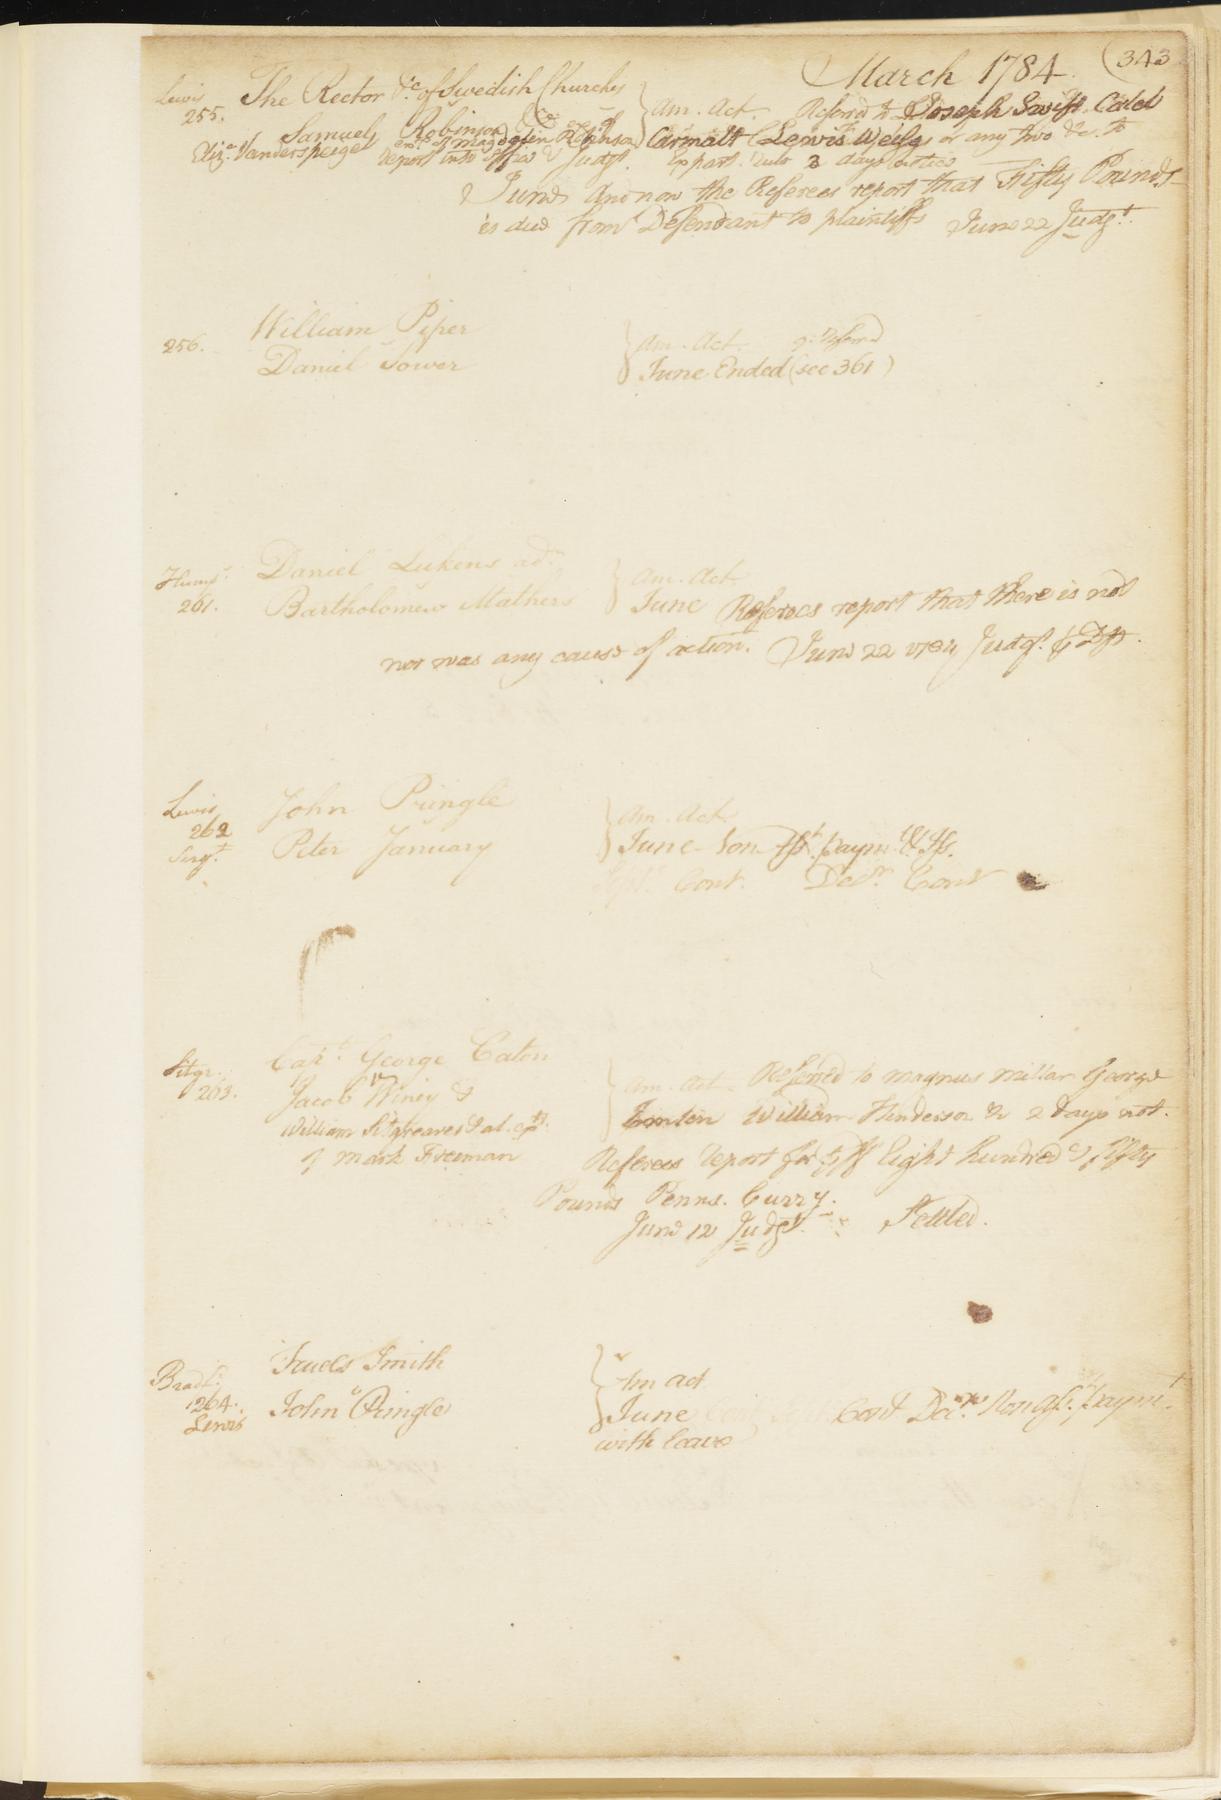 March 1784. (343
Lewis The Rector &c of Swedish Churches } Am. Act. Referred to Joseph Swift Caleb
255. Samuel Robinson & Carmalt Lewis Weiss or any two &c. to
Eliza. Vanderspeigel exrs. of Magdalen Robinson
report into office & Judgt. Expart. rule 3 days notice
June And now the Referees report that Fifty Pounds
is due from Defendant to plaintiffs June 22 Judgt.
William Piper
256. Daniel Sower } Am. Act.
June Ended (see 361)
Humps. Daniel Lukens adr. } Am. Act.
261. Bartholomew Mathers June Referees report that there is not
nor was any cause of action. June 22 1784 Judgt.
Lewis John Pringle } Am. Act.
262
Sergt. Peter January June Non Asst. paymt. & Iss.
Septr. Cont. Decr. Cont
Sitgr. Capt. George Eaton
263. Jacob Winey & } Am. Act. Referred to Magnus Millar George
William Sitgreaves & al. William Henderson &c 2 days not.
of Mark Freeman Referees report for plff Eight hundred & fifty
Pounds Penna. Curry.
June 12 Judgt. Settled.
Bradf. Truels Smith } Am act
264. John Pringle June Cont Sept Cont Decr. Non Asst. paymt.
Lewis with leave